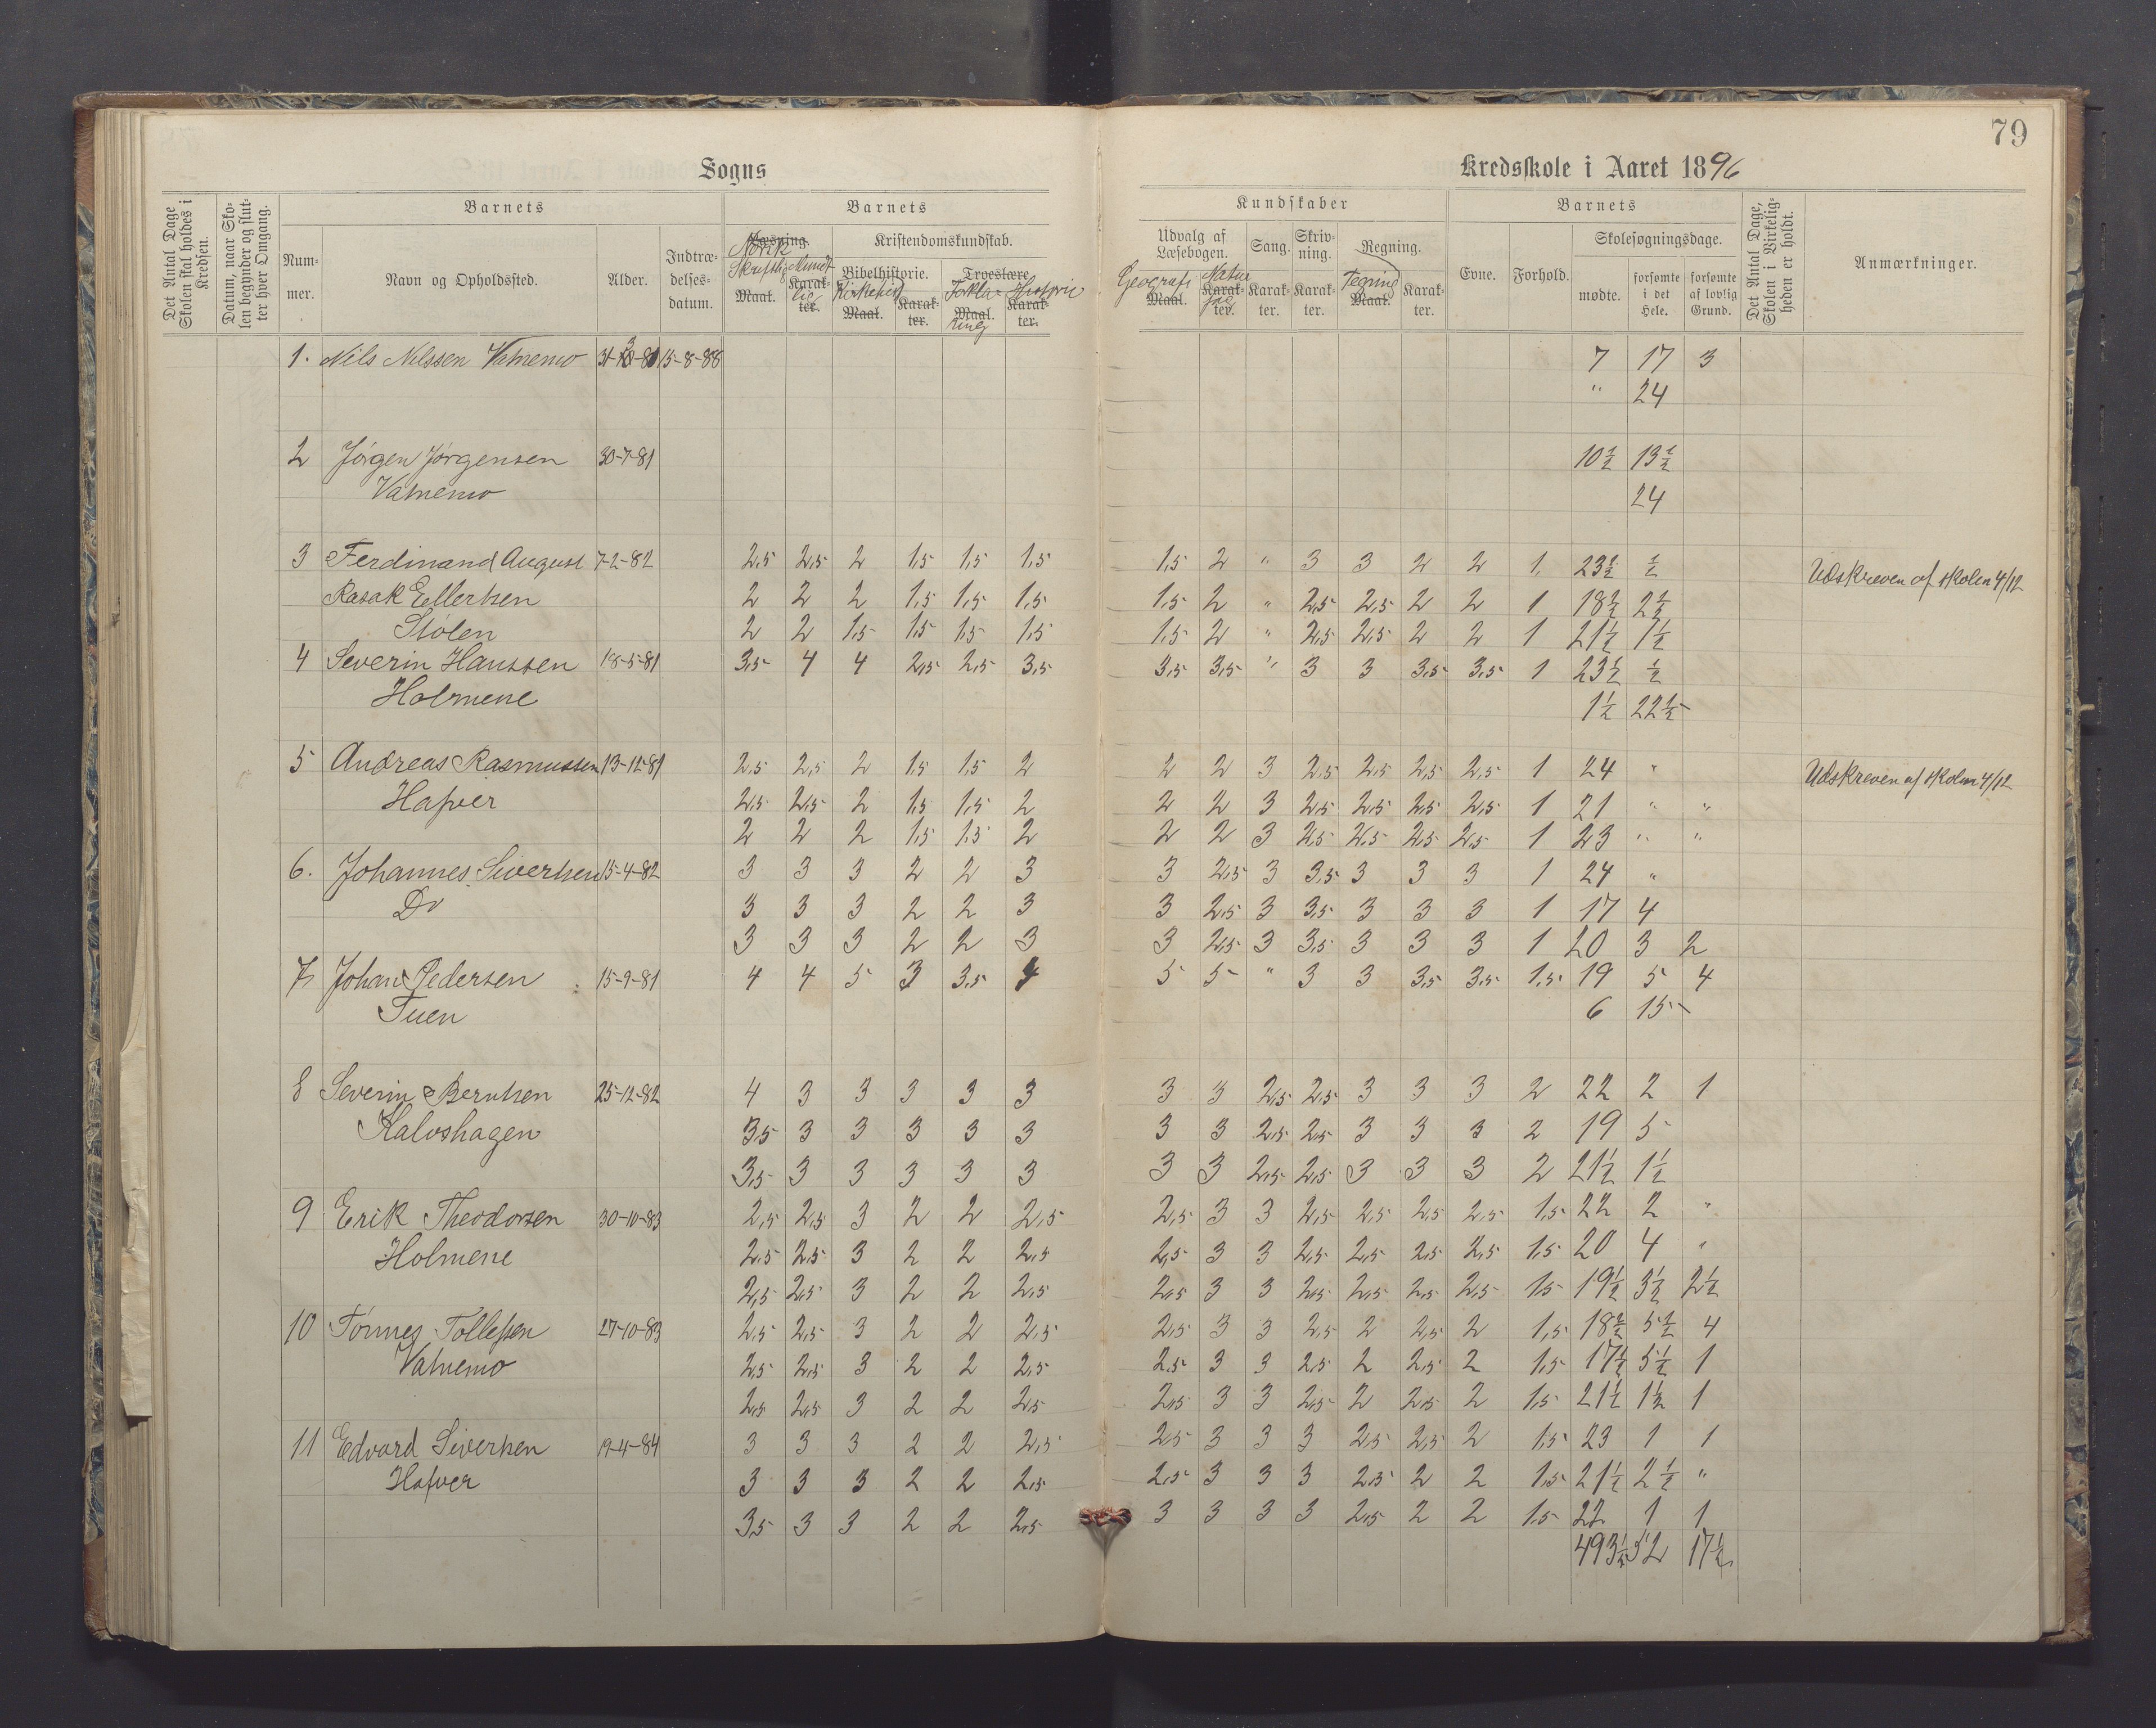 79
Sogns
Kredsskole i Aaret 1896
Det Antal Dage Skolen skal holdes i Kredsen.
Datum, naar Skolen begynder og slutter hver Omgang.
Barnets
Barnets
Kundskaber
Barnets
Det Antal Dage, Skolen i Virkeligheden er holdt.
Nummer.
Navn og Opholdssted.
Alder.
Indtrædelsesdatum.
Læsning. Norsk
Skriftlig Mundtlig
Maal. Karakter.
Kristendomskundskab.
Bibelhistorie. Troeslære
Kirkehist Forklaring Historie
Maal. Karakter. Maal. Karakter.
Udvalg af Læsebogen. Sang. Skrivning. Regning.
Geografi Naturfag Tegning
Maal. Karakter. Karakter. Karakter. Maal. Karakter.
Evne. Forhold.
Skolesøgningsdage.
mødte. forsømte i det Hele. forsømte af lovlig Grund.
Anmærkninger.
1. Nils Nilssen Vatnemo 15-8-88 7 17 3
" 24
2 Jörgen Jörgensen 30-7-81 10½ 13½
Vatnemo 24
3 Ferdinand August 7-2-82 2,5 2,5 2 1,5 1,5 1,5 1,5 2 " 3 3 2 2 1, 23½ ½ Udskreven af skolen 4/12
Rasak Ellertsen 2 2 2 1,5 1,5 1,5 1,5 2 " 2,5 2,5 2 2 1 18½ 2½
Stölen 2 2 1,5 1,5 1,5 1,5 1,5 2 " 2,5 2,5 2 2 1 21½ 1½
4 Severin Hanssen 18-5-81 3,5 4 4 2,5 2,5 3,5 3,5 3,5 " 3 3 3,5 3,5 1 23½ ½
Holmene 1½ 22½
5 Andreas Rasmussen 13-12-81 2,5 2,5 2 1,5 1,5 2 2 2 3 2,5 2,5 2,5 2,5 1 24 " Udskreven af skolen 4/12
Hafver 2,5 2,5 2 1,5 1,5 2 2 2 3 2,5 2,5 2,5 2,5 1 21 " "
2 2 2 1,5 1,5 2 2 2 3 2,5 2,5 2,5 2,5 1 23 " "
6. Johannes Sivertsen 15-4-82 3 3 3 2 2 3 3 2,5 3 3,5 3 3 3 1 24 "
Do 3 3 3 2 2 3 3 2,5 3 3,5 3 3 3 1 17 4
3 3 3 2 2 3 3 2,5 3 3,5 3 3 3 1 20 3 2
7 Johan Pedersen 15-9-81 4 4 5 3 3,5 4 5 5 " 3 3 3,5 3,5 1,5 19 5 4
Tuen 6 15
8 Severin Berntsen 25-12-82 4 3 3 3 3 3 3 3 2,5 2,5 3 3 3 2 22 2 1
Kalvshagen 3,5 3 3 3 3 3 3 3 2,5 2,5 3 3 3 2 19 5
3,5 3 3 3 3 3 3 3 2,5 2,5 3 3 3 2 21½ 1½
9 Erik Theodorsen 30-10-83 2,5 2,5 3 2 2 2,5 2,5 3 3 2,5 2,5 2,5 2,5 1,5 22 2 "
Holmene 2,5 2,5 3 2 2 2,5 2,5 3 3 2,5 2,5 2,5 2,5 1,5 20 4 "
2,5 2,5 3 2 2 2,5 2,5 3 3 2,5 2,5 2,5 2,5 1,5 19½ 3½ 2½
10 Tönnes Tollefsen 27-10-83 2,5 2,5 3 2 2 2,5 2,5 3 3 2,5 2 2,5 2 1,5 18½ 5½ 4
Vatnemo 2,5 2,5 3 2 2 2,5 2,5 3 3 2,5 2 2,5 2 1,5 17½ 5½ 1
2,5 2,5 3 2 2 2,5 2,5 3 3 2,5 2 2,5 2 1,5 21½ 1½ 1
11 Edvard Sivertsen 19-4-84 3 3 3 2 2 2,5 2,5 3 3 3 2,5 2,5 2 1,5 23 1 1
Hafver 3 3 3 2 2 2,5 2,5 3 3 3 2,5 2 2 1,5 21½ 2½ "
3,5 3 3 2 2 2,5 3 3 3 3 2,5 2 2 1,5 22 1 1
493½ 52 17½